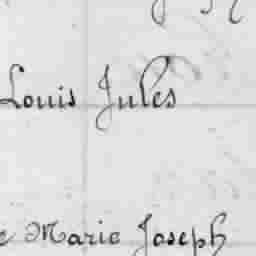 Louis Jules
Marie Joseph